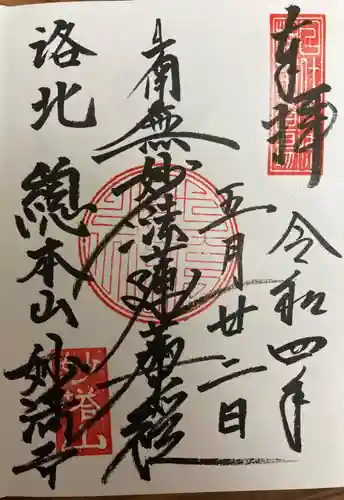 奉拝
令和四年
五月廿二日
南無妙法蓮華経
洛北 總本山 妙満寺
妙塔山